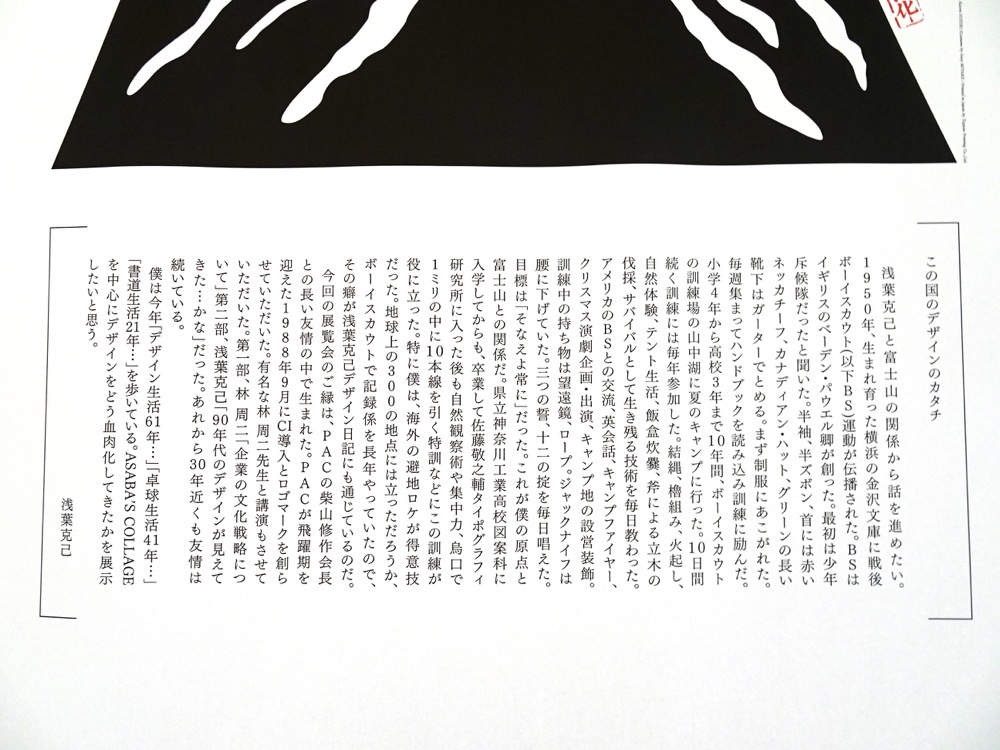 花
この国のデザインのカタチ
浅葉克己と富士山の関係から話を進めたい。
1950年、生まれ育った横浜の金沢文庫に戦後
ボーイスカウト(以下BS)運動が伝播された。BSは
イギリスのベーデン・パウエル卿が創った。最初は少年
斥候隊だったと聞いた。半袖、半ズボン、首には赤い
ネッカチーフ、カナディアン・ハット、グリーンの長い
靴下はガーターでとめる。まず制服にあこがれた。
毎週集まってハンドブックを読み込み訓練に励んだ。
小学4年から高校3年まで10年間、ボーイスカウト
の訓練場の山中湖に夏のキャンプに行った。10日間
続く訓練には毎年参加した。結縄、櫓組み、火起し、
自然体験、テント生活、飯盒炊爨、斧による立木の
伐採、サバイバルとして生き残る技術を毎日教わった。
アメリカのBSとの交流、英会話、キャンプファイヤー、
クリスマス演劇企画・出演、キャンプ地の設営装飾。
訓練中の持ち物は望遠鏡、ロープ。ジャックナイフは
腰に下げていた。三つの誓、十二の掟を毎日唱えた。
目標は「そなえよ常に」だった。これが僕の原点と
富士山との関係だ。県立神奈川工業高校図案科に
入学してからも、卒業して佐藤敬之輔タイポグラフィ
研究所に入った後も自然観察術や集中力、烏口で
1ミリの中に10本線を引く特訓などにこの訓練が
役に立った。特に僕は、海外の避地ロケが得意技
だった。地球上の300の地点には立っただろうか、
ボーイスカウトで記録係を長年やっていたので、
その癖が浅葉克己デザイン日記にも通じているのだ。
今回の展覧会のご縁は、PACの柴山修作会長
との長い友情の中で生まれた。PACが飛躍期を
迎えた1988年9月にCI導入とロゴマークを創ら
せていただいた。有名な林 周二先生と講演もさせて
いただいた。第一部、林 周二、「企業の文化戦略につ
いて」第二部、浅葉克己「90年代のデザインが見えて
きた…かな」だった。あれから30年近くも友情は
続いている。
僕は今年「デザイン生活61年…」「卓球生活41年…」
「書道生活21年…」を歩いている。ASABA'S COLLAGE
を中心にデザインをどう血肉化してきたかを展示
したいと思う。
浅葉克己